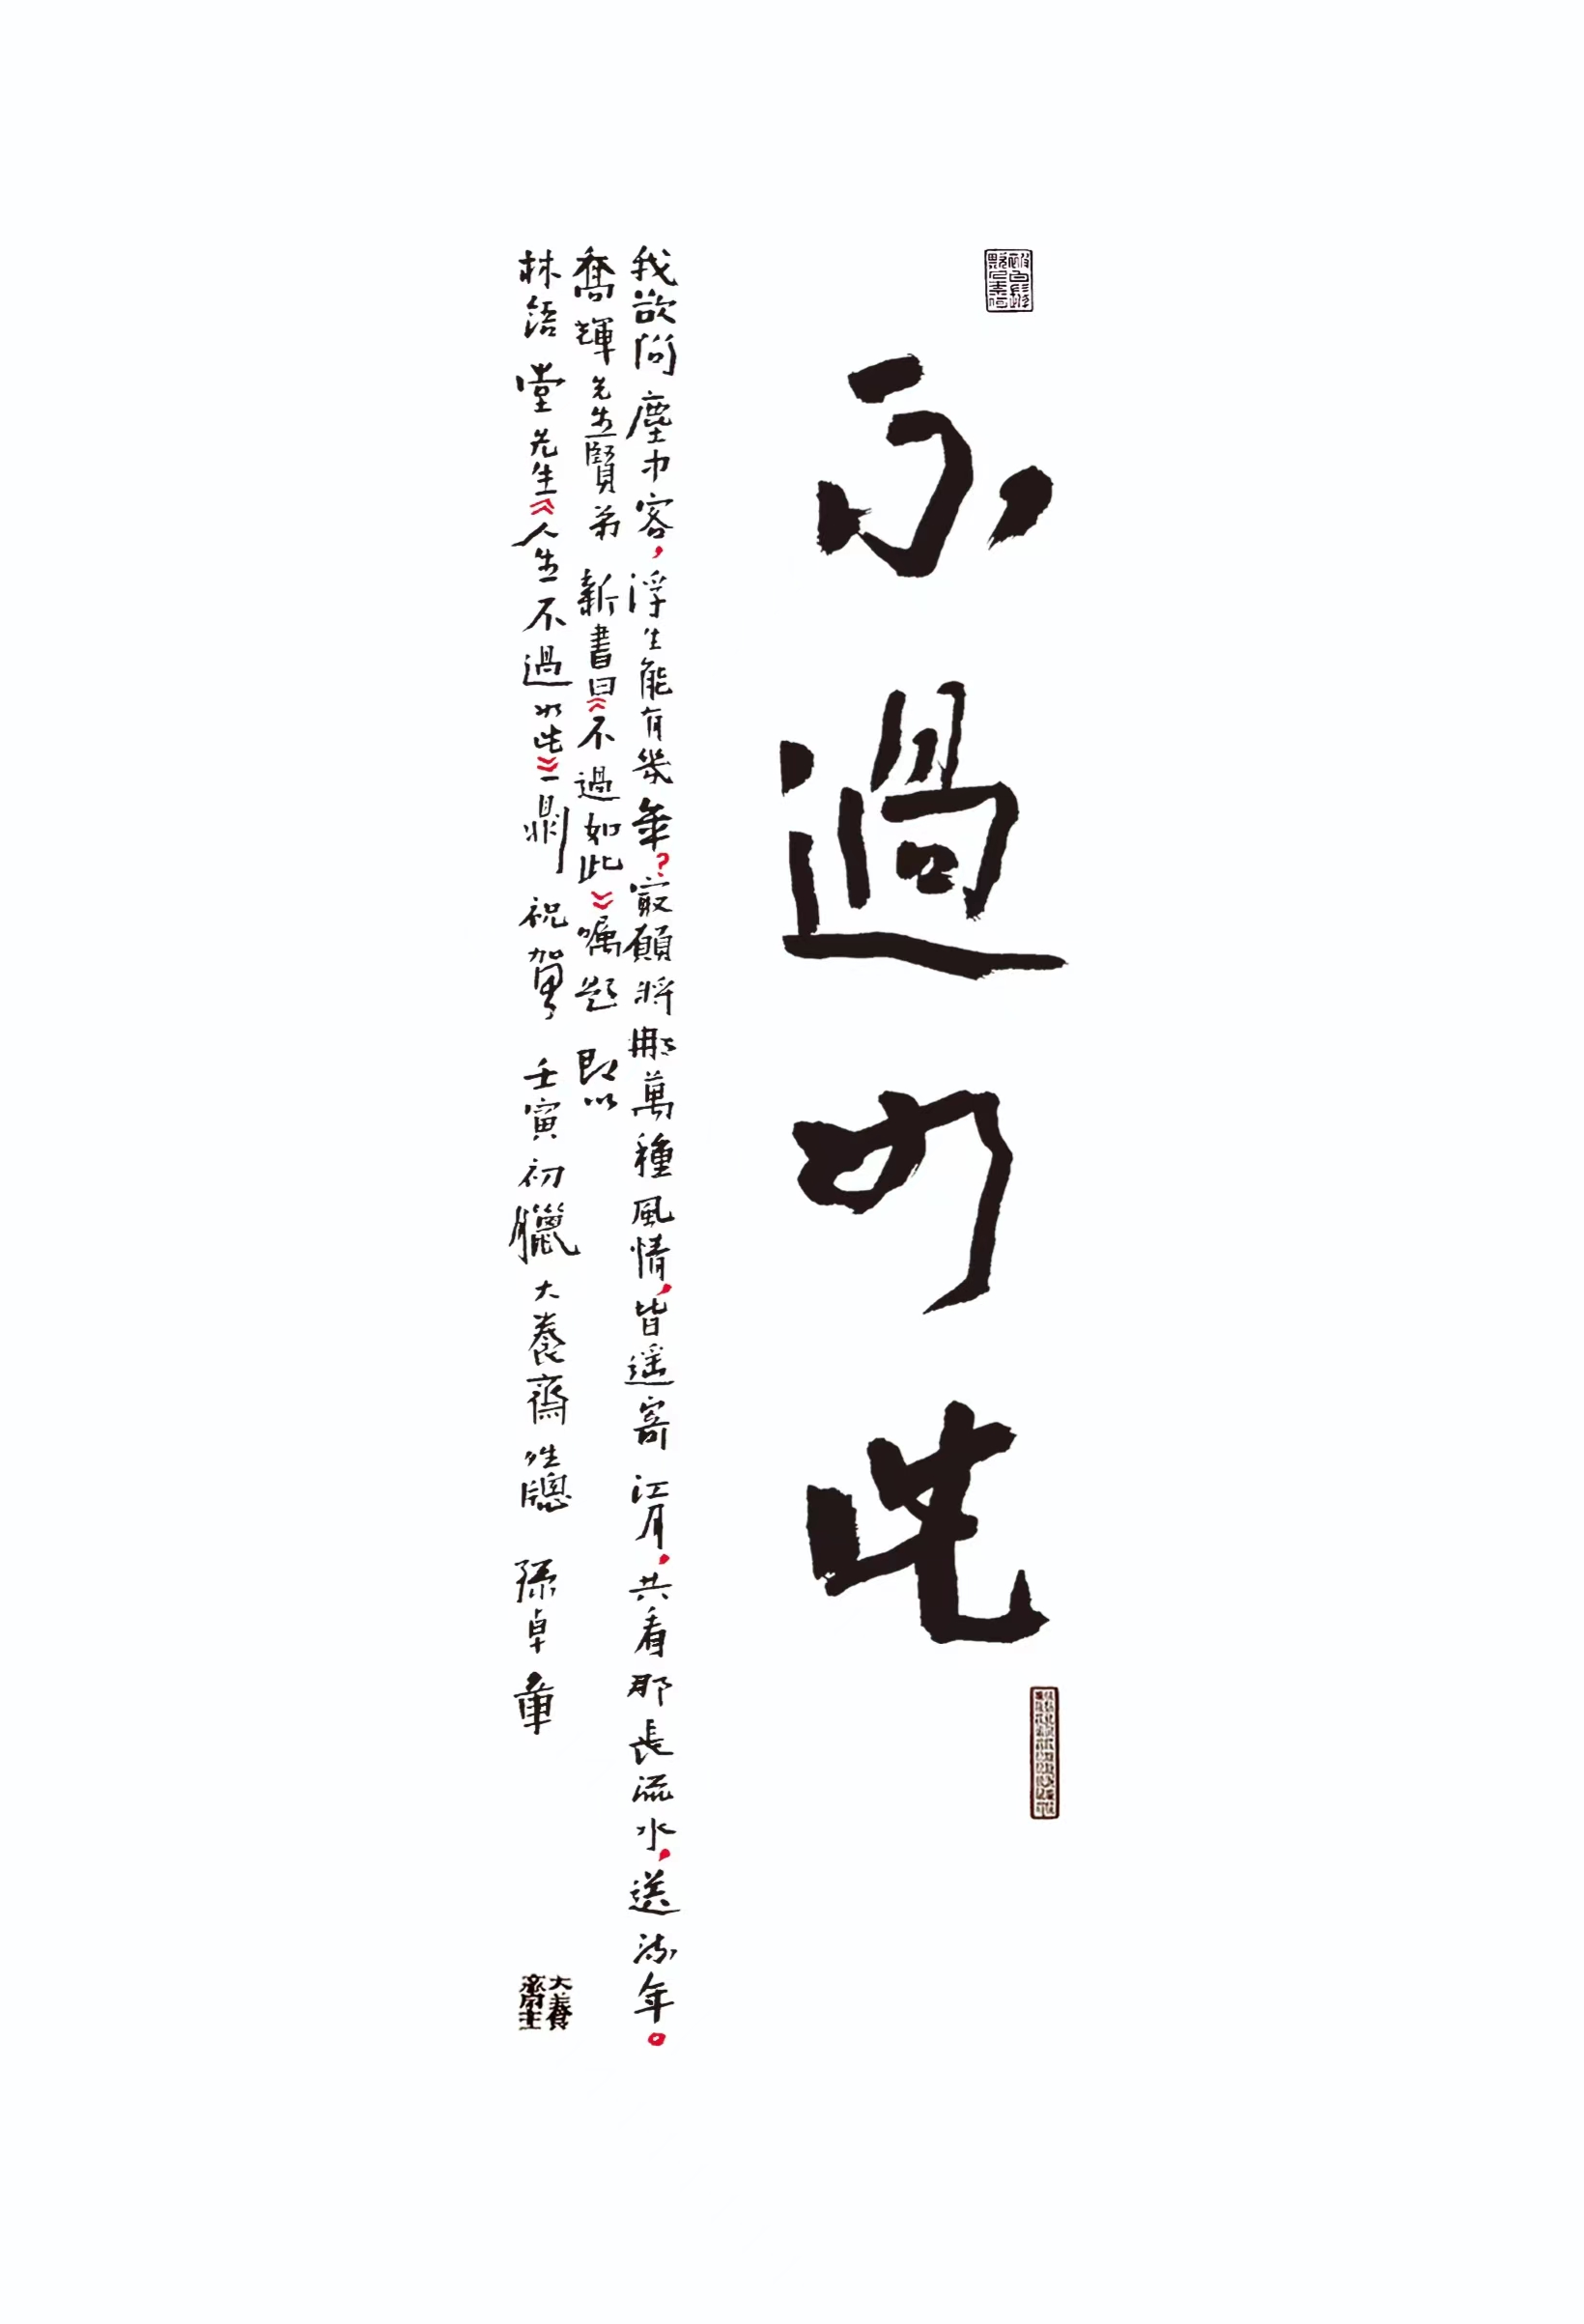 不過如此
我欲问塵巾客，浮生能有幾年？寂願將那萬種風情，皆遥寄江月，共看那長流水，送流年。
喬輝先生賢弟新書曰《不過如此》嘱題即以
林語堂先生《人生不過如此》一鼎祝賀壬寅初臘大養齋牲牕孫卓章
大養齋主